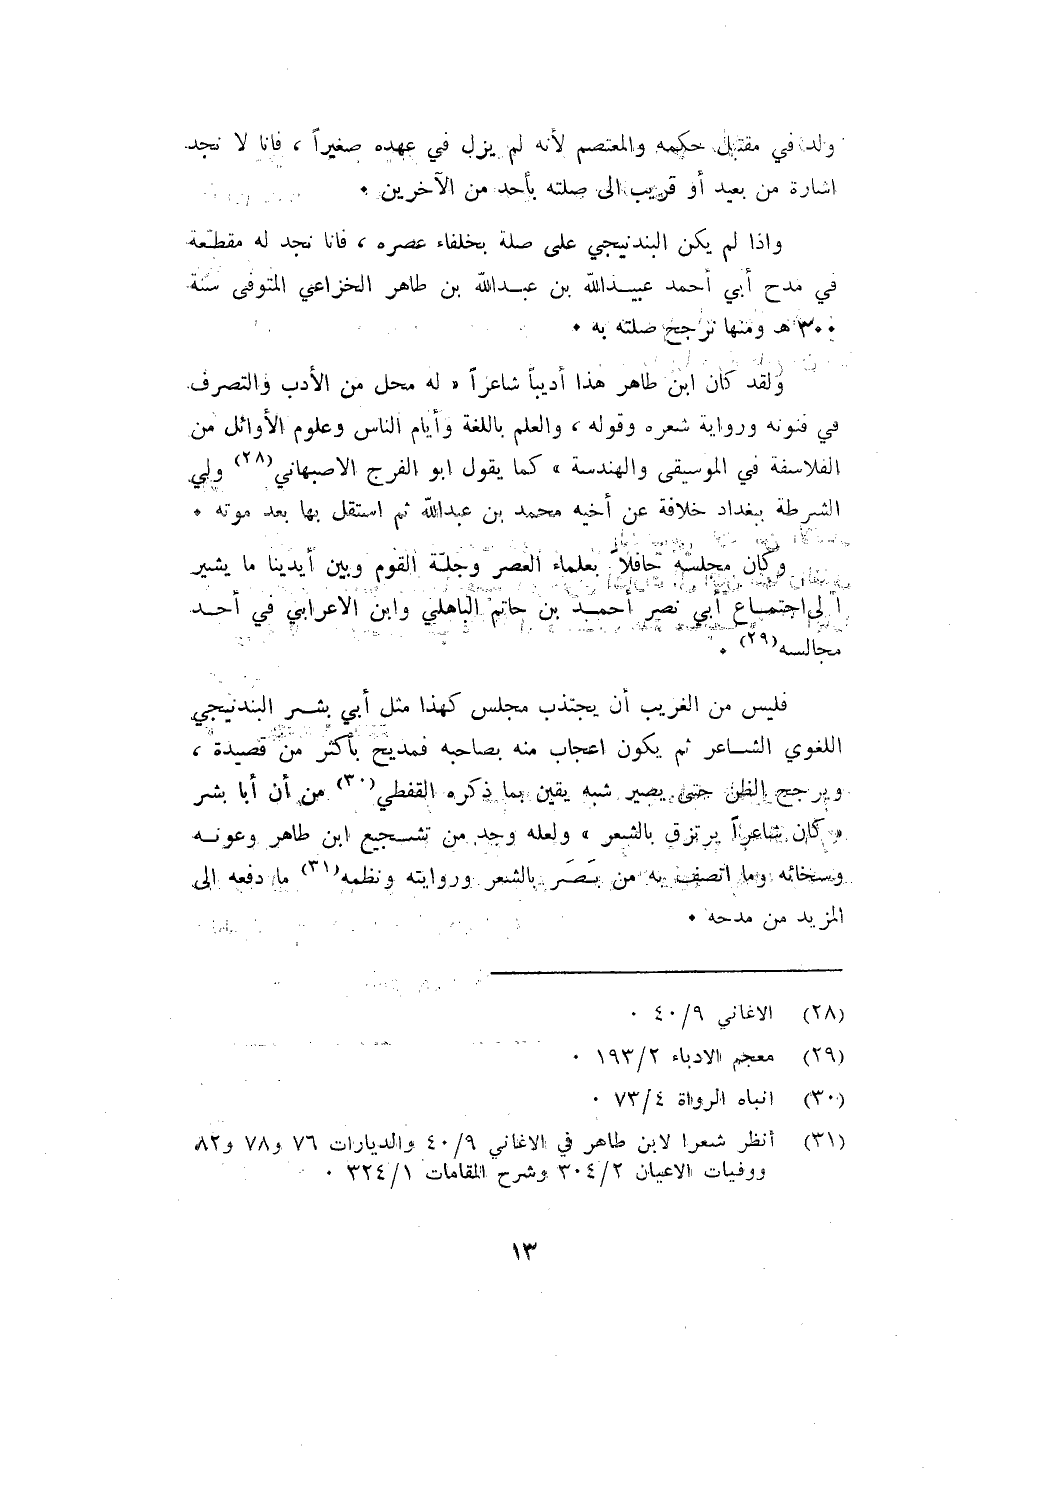 ولد في مقتبل حكمه والمعتصم لأنه لم يزل في عهده صغيراً ، فانا لا نجد
اشارة من بعيد أو قريب الى صلته بأحد من الآخرين ٠
واذا لم يكن البندنيجي على صلة بخلفاء عصره ، فانا نجد له مقطّعة
في مدح أبي أحمد عبيـدالله بن عبـدالله بن طاهر الخزاعي المتوفى سنة
٣٠٠هـ ومنها نرجح صلته به ٠
ولقد كان ابن طاهر هذا أديباً شاعراً « له محل من الأدب والتصرف
في فنونه ورواية شعره وقوله ، والعلم باللغة وأيام الناس وعلوم الأوائل من
الفلاسفة في الموسيقى والهندسة » كما يقول ابو الفرج الاصبهاني(٢٨) ولي
الشرطة ببغداد خلافة عن أخيه محمد بن عبدالله ثم استقل بها بعد موته ٠
وكان مجلسه حافلاً بعلماء العصر وجلّة القوم وبين أيدينا ما يشير
الى اجتمـاع أبي نصر أحمـد بن حاتم الباهلي وابن الاعرابي في أحـد
مجالسه(٢٩) ٠
فليس من الغريب أن يجتذب مجلس كهذا مثل أبي بشـر البندنيجي
اللغوي الشـاعر ثم يكون اعجاب منه بصاحبه فمديح بأكثر من قصيدة ،
ويرجح الظن حتى يصير شبه يقين بما ذكره القفطي(٣٠) من أن أبا بشر
« كان شاعراً يرتزق بالشعر » ولعله وجد من تشـجيع ابن طاهر وعونـه
وسخائه وما اتصف به من بَصَر بالشعر وروايته ونظمه(٣١) ما دفعه الى
المزيد من مدحه ٠
(٢٨) الاغاني ٩/٤٠ ٠
(٢٩) معجم الادباء ٢/١٩٣ ٠
(٣٠) انباه الرواة ٤/٧٣ ٠
(٣١) أنظر شعرا لابن طاهر في الاغاني ٩/٤٠ والديارات ٧٦ و٧٨ و٨٢
ووفيات الاعيان ٢/٣٠٤ وشرح المقامات ١/٣٢٤ ٠
١٣